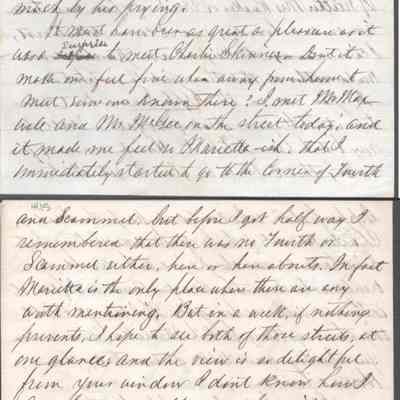 much by his prying.
It must have been as great a pleasure as it
was a surprise to meet Charlie Skinner. But it
makes one feel fine when away from home to
meet someone known there! I met Mr Max
well and Mr McGee on the street today, and
it made me feel so Marietta-ish, that I
immediately started to go to the corner of Fourth
and Scammel, but before I got half way I
remembered that there was no Fourth or
Scammel either, here or hereabouts. In fact
Marietta is the only place where there are any
worth mentioning. But in a week, if nothing
prevents, I hope to see both of those streets, at
one glance; and the view is so delightful
from your window I don't know how I